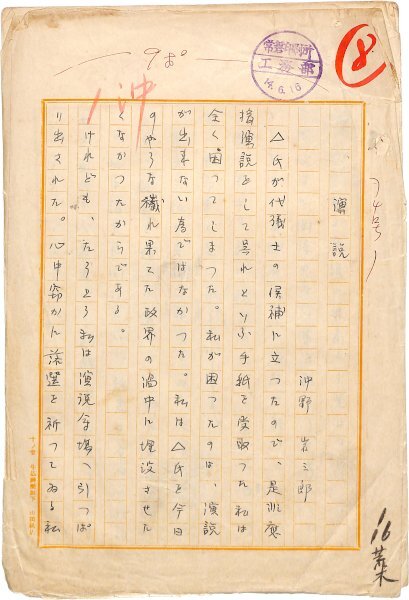 9ポ
8
工務部
沖
演説
沖野岩三郎
△氏が代議士の候補に立つたので、是非應
援演説をして呉れといふ手紙を受取つた私は
全く困つてしまつた。私が困つたのは、演説
が出来ない為ではなかつた。私は△氏を今日
のやうな穢れ果てた政界の渦中に埋没させた
くなかつたからである。
けれども、たうとう私は演説会場へ引つぱ
り出された。心中窃かに落選を祈つてゐる私
16 荒木